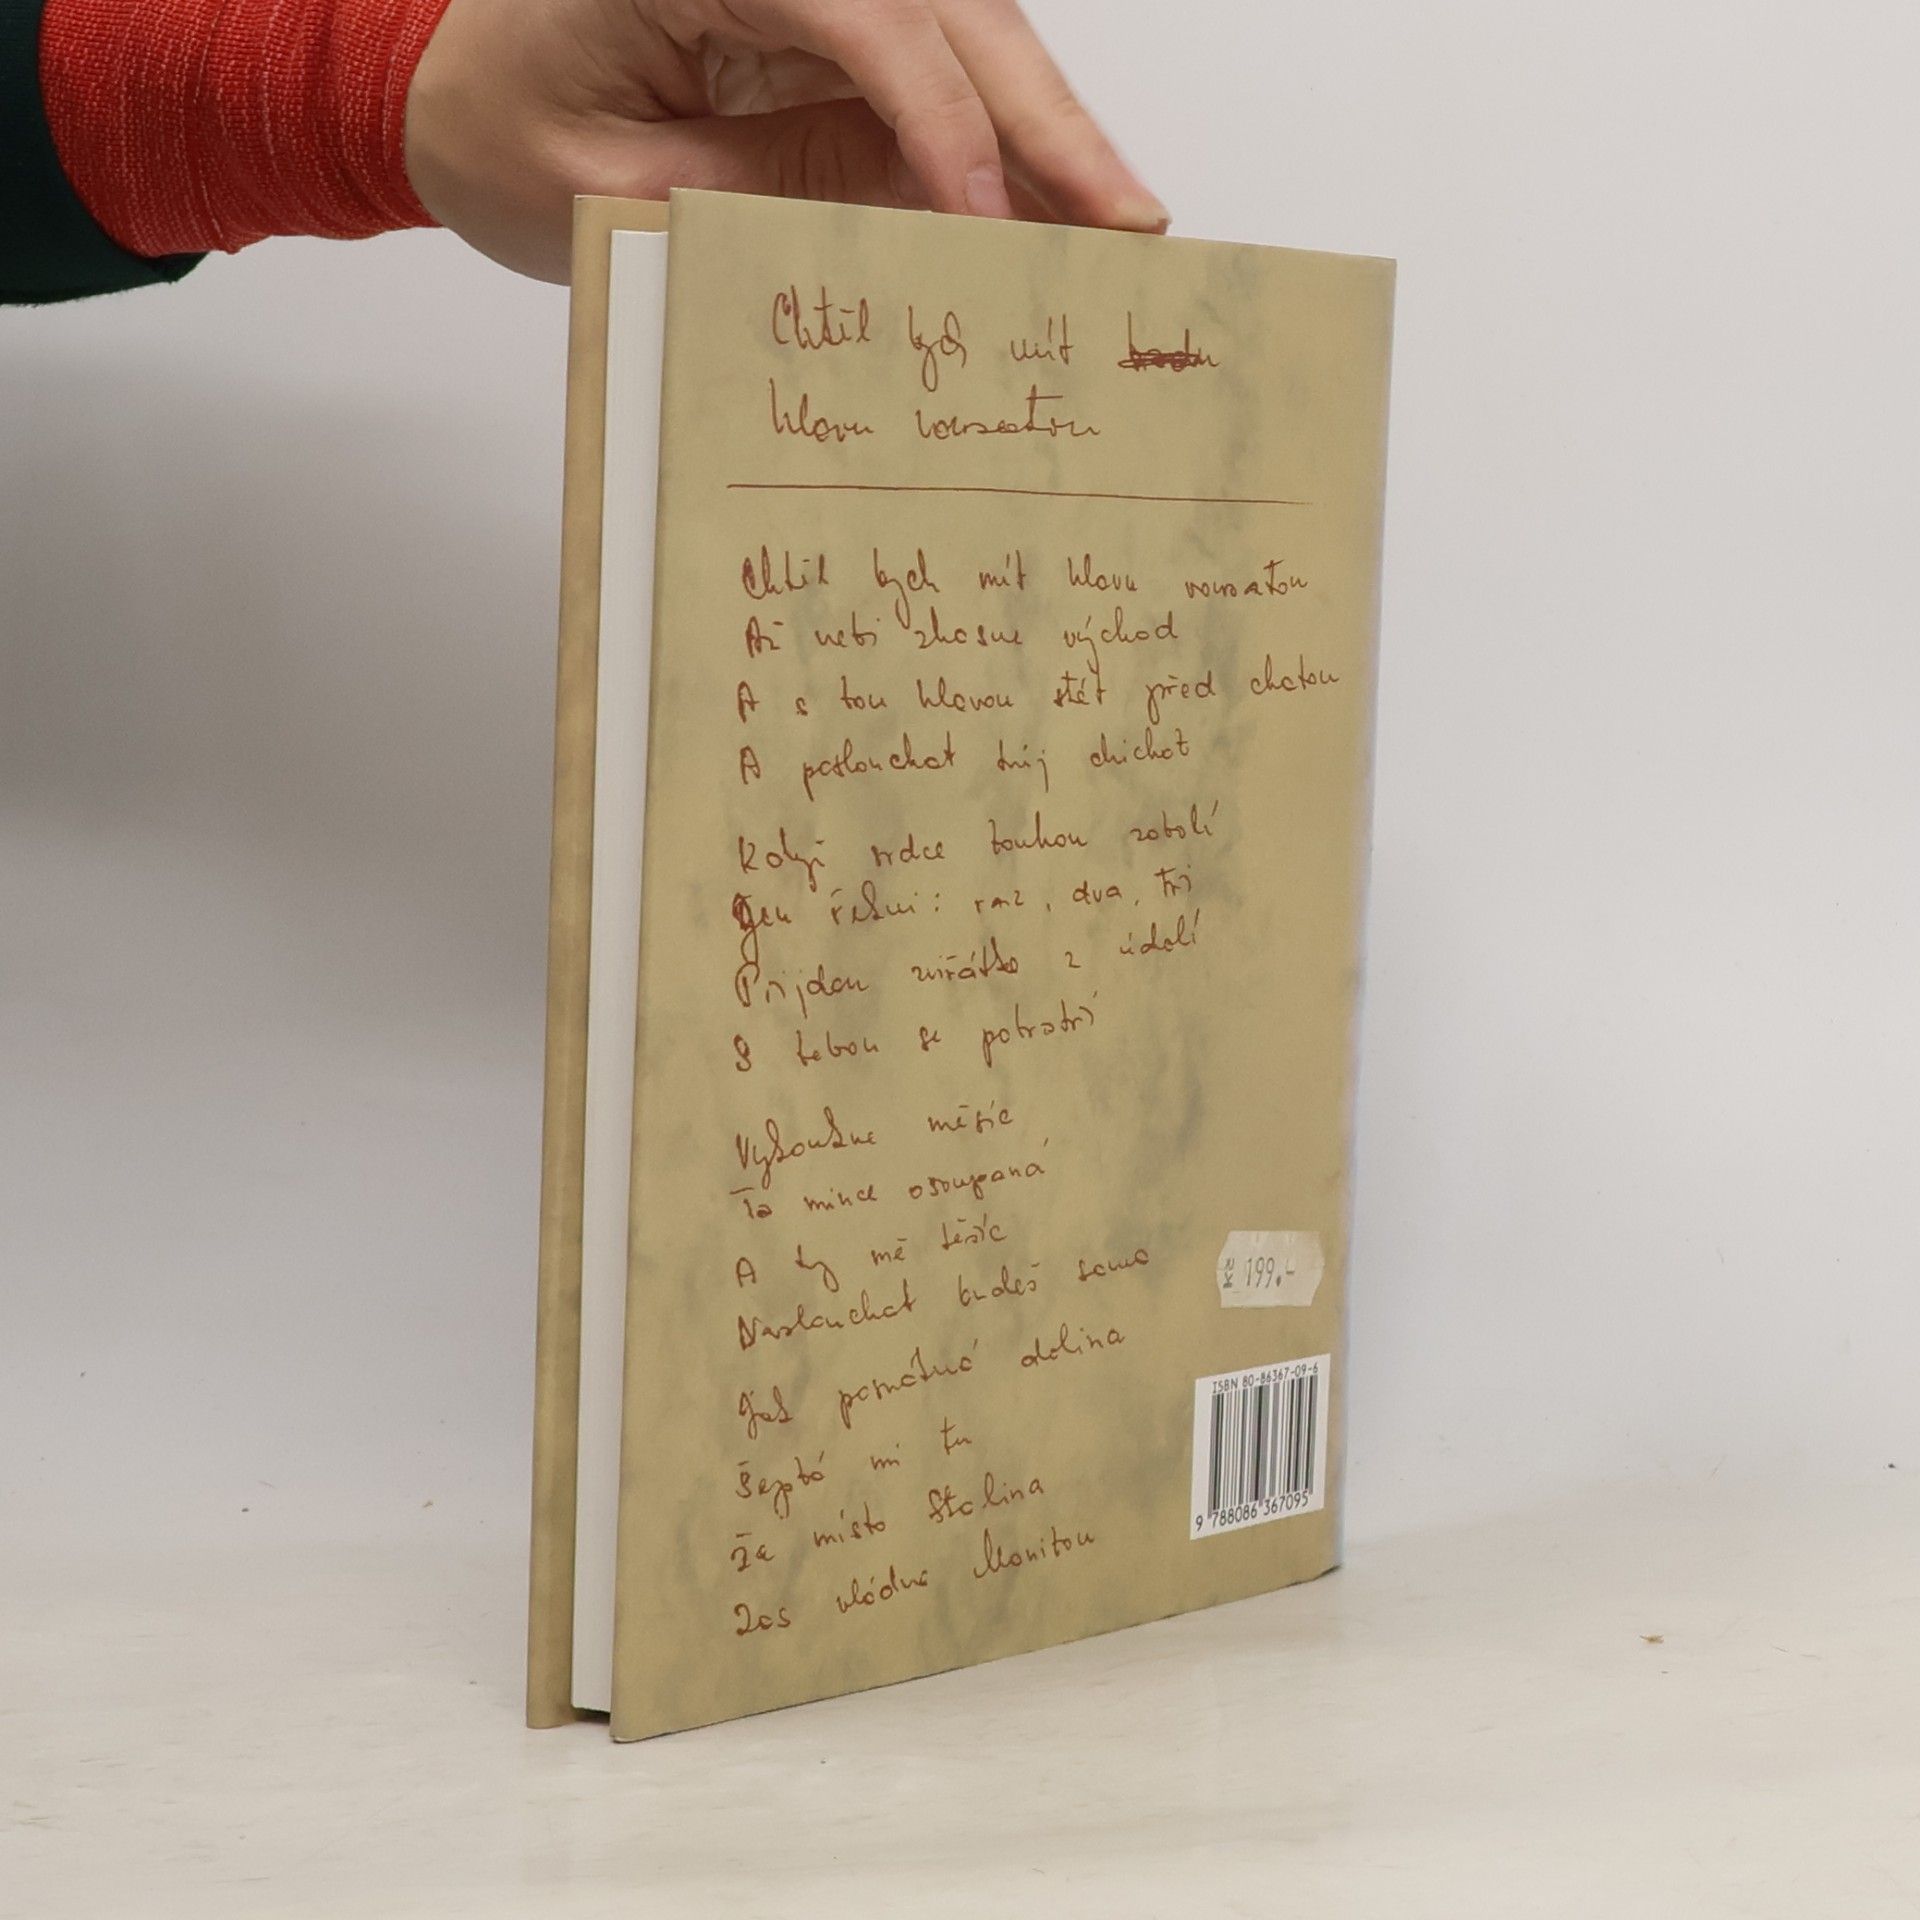 Chtěl bych mít
hlavu vousatou
Chtěl bych mít hlavu vousatou
Až nebi zhasne východ
A s tou hlavou stát před chatou
A poslouchat tvůj chichot
Když srdce touhou zabolí
Jen řekni: raz, dva, tři
Přijdou zvířátka z údolí
S tebou se pobratří
Vykoukne měsíc
Ta mince osoupaná
A ty mě těšíc
Naslouchat budeš sama
Jak památná dolina
Šeptá mi tu
Že místo Stalina
Zas vládne Manitou
Kč 199.-
ISBN 80-86367-09-6
9 788086 367095